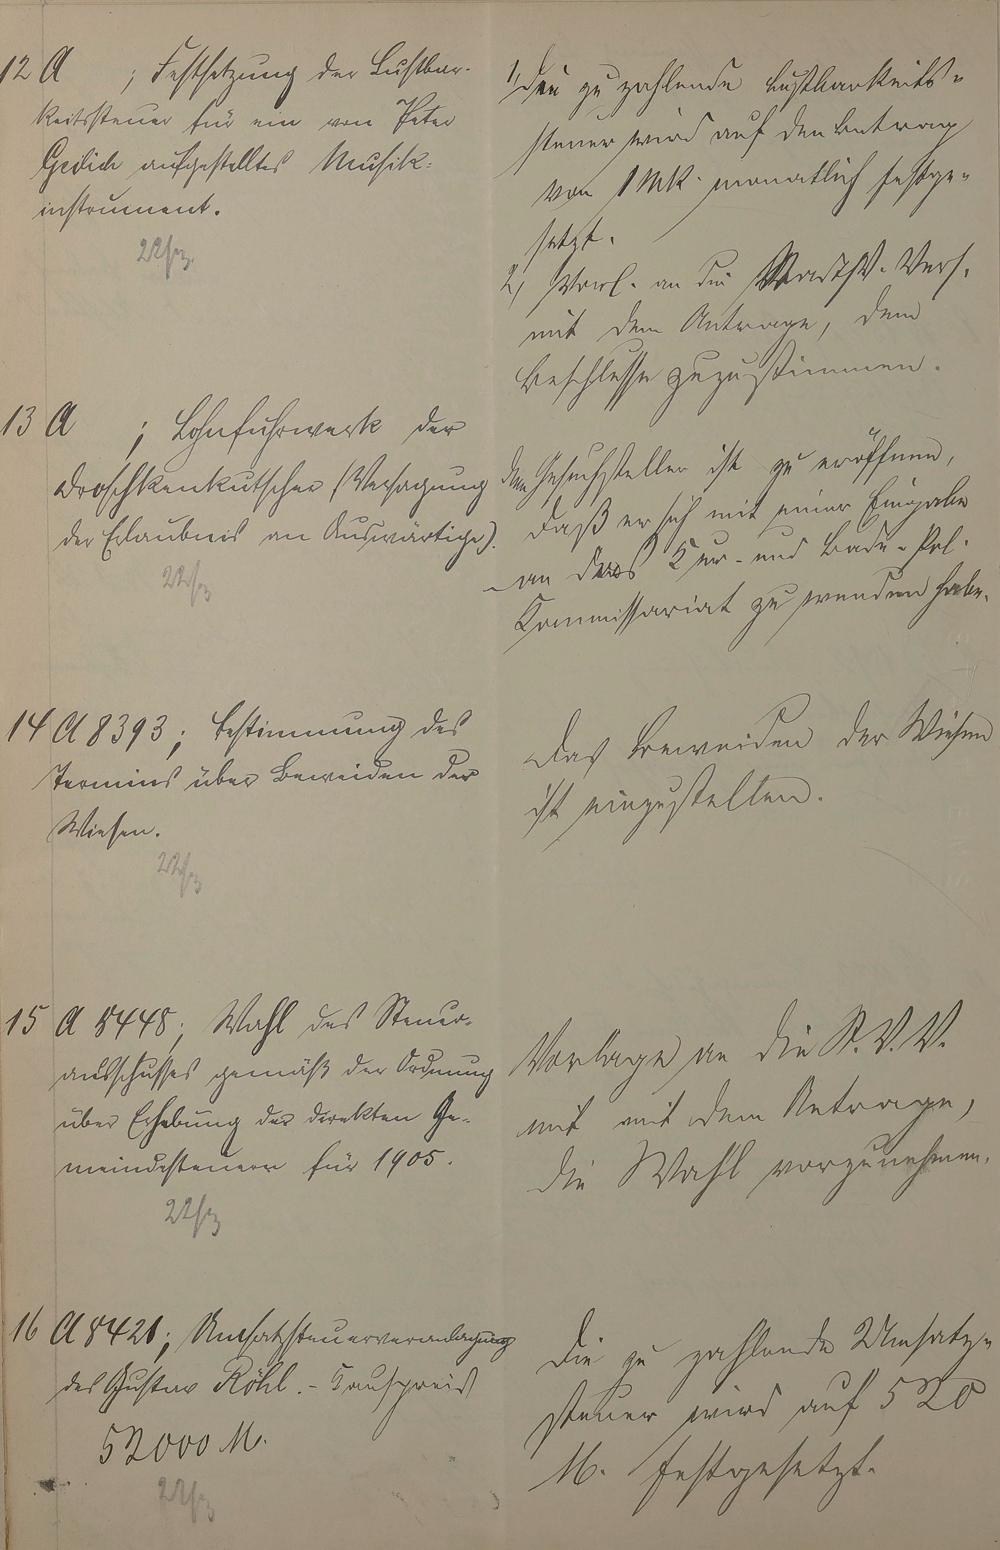 12 A ; Festsetzung der Lustbar-
keitssteuer für ein von Peter
aufgestelltes Musik-
instrument.
22/3
1, Die zu zahlende Lustbarkeits-
steuer wird auf den Betrag
von 1 Mk. monatlich festge-
setzt.
2, Vorl. an die Stadtv. Vers.
mit dem Antrage, dem
Beschlusse zuzustimmen.
13 A ; Lohnfuhrwerk der
Droschkenkutscher (Versagung
der Erlaubnis an Auswärtige).
22/3
Dem Gesuchsteller ist zu eröffnen,
daß er sich mit seiner Eingabe
an das Kur- und Bade-Pol.
Kommissariat zu wenden habe.
14 A 8393; Bestimmung des
Termins über Beweiden der
Wiesen.
22/3
Das Beweiden der Wiesen
ist einzustellen.
15 A 8448; Wahl des Steuer-
ausschusses gemäß der Ordnung
über Erhebung der direkten Ge-
meindesteuern für 1905.
22/3
Vorlage an die St. V. V.
mit mit dem Antrage,
die Wahl vorzunehmen.
16 A 8421; Umsatzsteuerveranlagung
des Gustav Röhl. - Kaufpreis
52000 M.
22/3
Die zu zahlende Umsatz-
steuer wird auf 520
M. festgesetzt.